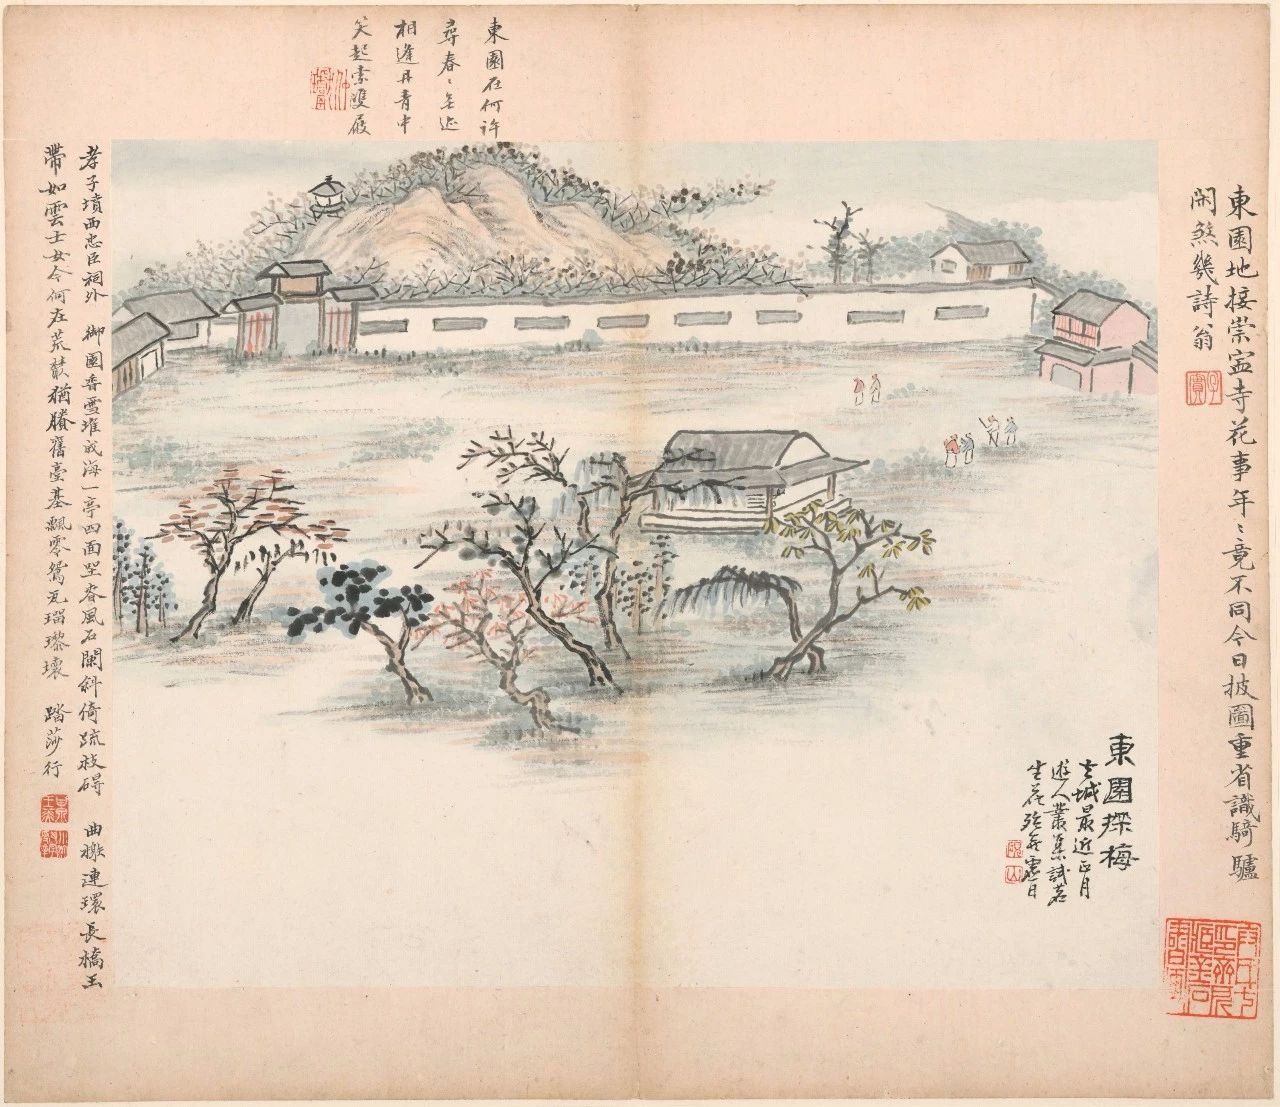 東園地接崇寍寺花事年〻竟不同今日披圖重省識騎驢
閑煞幾詩翁
東園在何許
尋春〻
相逢丹青中
笑起索雙屐
東園探梅
去城最近正月
遊人叢集試茗
生花殆無虛日
孝子墳西忠臣祠外 御園香雪堆成海一亭四面望春風石闌斜倚疏枝碍 曲檄連環長橋玉
帶如雲士女今何在荒叢猶賸舊臺基飄零鴛瓦瑠璃壞 踏莎行